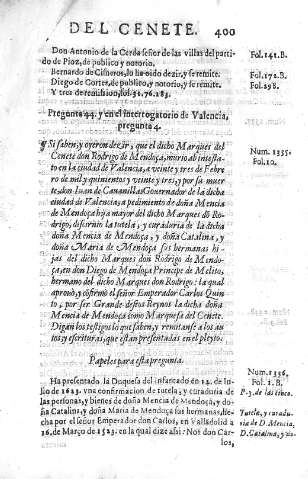 DEL CENETE. 400
Don Antonio de la Cerda señor de las villas del partido de Pioz, de publico y notorio. Fol. 141. B.
Bernardo de Cisneros, lo ha oido dezir, y se remite. Fol. 172. B.
Diego de Cortes, de publico, y notorio, y se remite. Fol. 198.
Y tres de remission, fol. 51. 76. 183.
Pregunta 44. y en el interrogatorio de Valencia,
pregunta 4.
Si saben, y oyeron dezir, que el dicho Marques del Num. 1335.
Cenete don Rodrigo de Mendoça, murio ab intesta- Fol. 10.
to en la ciudad de Valencia, a veinte y tres de Febre
ro de mil y quinientos y veinte y tres, y por su muer
te, don Iuan de Cananillas Governador de la dicha
ciudad de Valencia, a pedimiento de doña Mencia
de Mendoça hija mayor del dicho Marques dō Ro-
drigo, discirnio la tutela, y curaduria de la dicha
doña Mencia de Mendoça, y doña Catalina, y
doña Maria de Mendoça sus hermanas hi-
jas del dicho Marques don Rodrigo de Mendo-
ça, en don Diego de Mendoça Principe de Melito,
hermano del dicho Marques don Rodrigo: la qual
aprouò, y cōfirmò el señor Emperador Carlos Quin
to, por ser Grande destos Reynos la dicha doña
Mencia de Mendoça como Marquesa del Cenete.
Digan los testigos lo que saben, y remitanse a los au-
tos y escrituras, que estan presentadas en el pleyto.
Papeles para esta pregunta.
Ha presentado la Duquesa del Infantado en 12. de Iu- Num. 1336.
lio de 1623. vna confirmacion de tutela, y curaduria de Fol. 1. B.
las personas, y bienes de doña Mencia de Mendoça, y do- P. 3. de las cinco.
ña Catalina, y doña Maria de Mendoça sus hermanas, he- Tutela, y curadu-
cha por el señor Emperador don Carlos, en Valladolid a ria de D. Mencia,
26. de Março de 1523. en la qual dize assi: Nos don Car- D. Catalina, y do-
los,